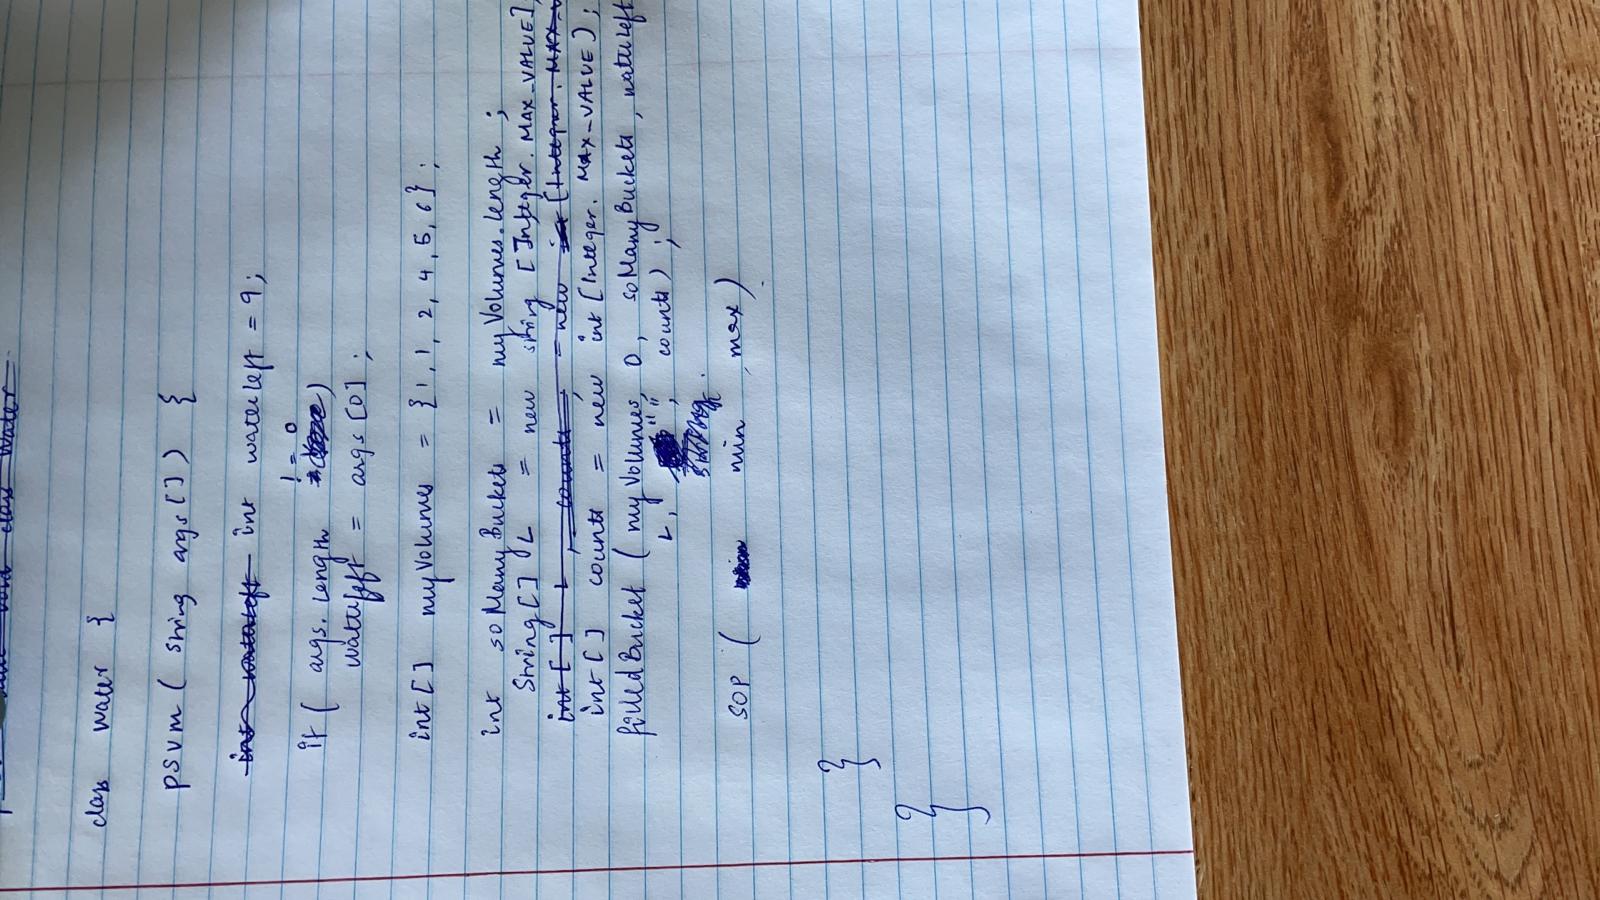 void class Water
class Water {
psvm ( String args [] ) {
int waterleft int waterleft = 9;
!= 0
if ( args. Length )
waterleft = args [0] ;
int [] myVolumes = {1, 1, 2, 4, 5, 6} ;
int soManyBuckets = myVolumes.length ;
String[] L = new string [Integer. MAX_VALUE]
int [ ] L , counts ; = new int [Integer. MAX_V
int [] counts = new int [Integer. MAX_VALUE ] ;
filledBucket ( myVolumes, 0, soManyBuckets, waterleft
L, " ", counts ) ;
string
SOP ( min , max )
}
}